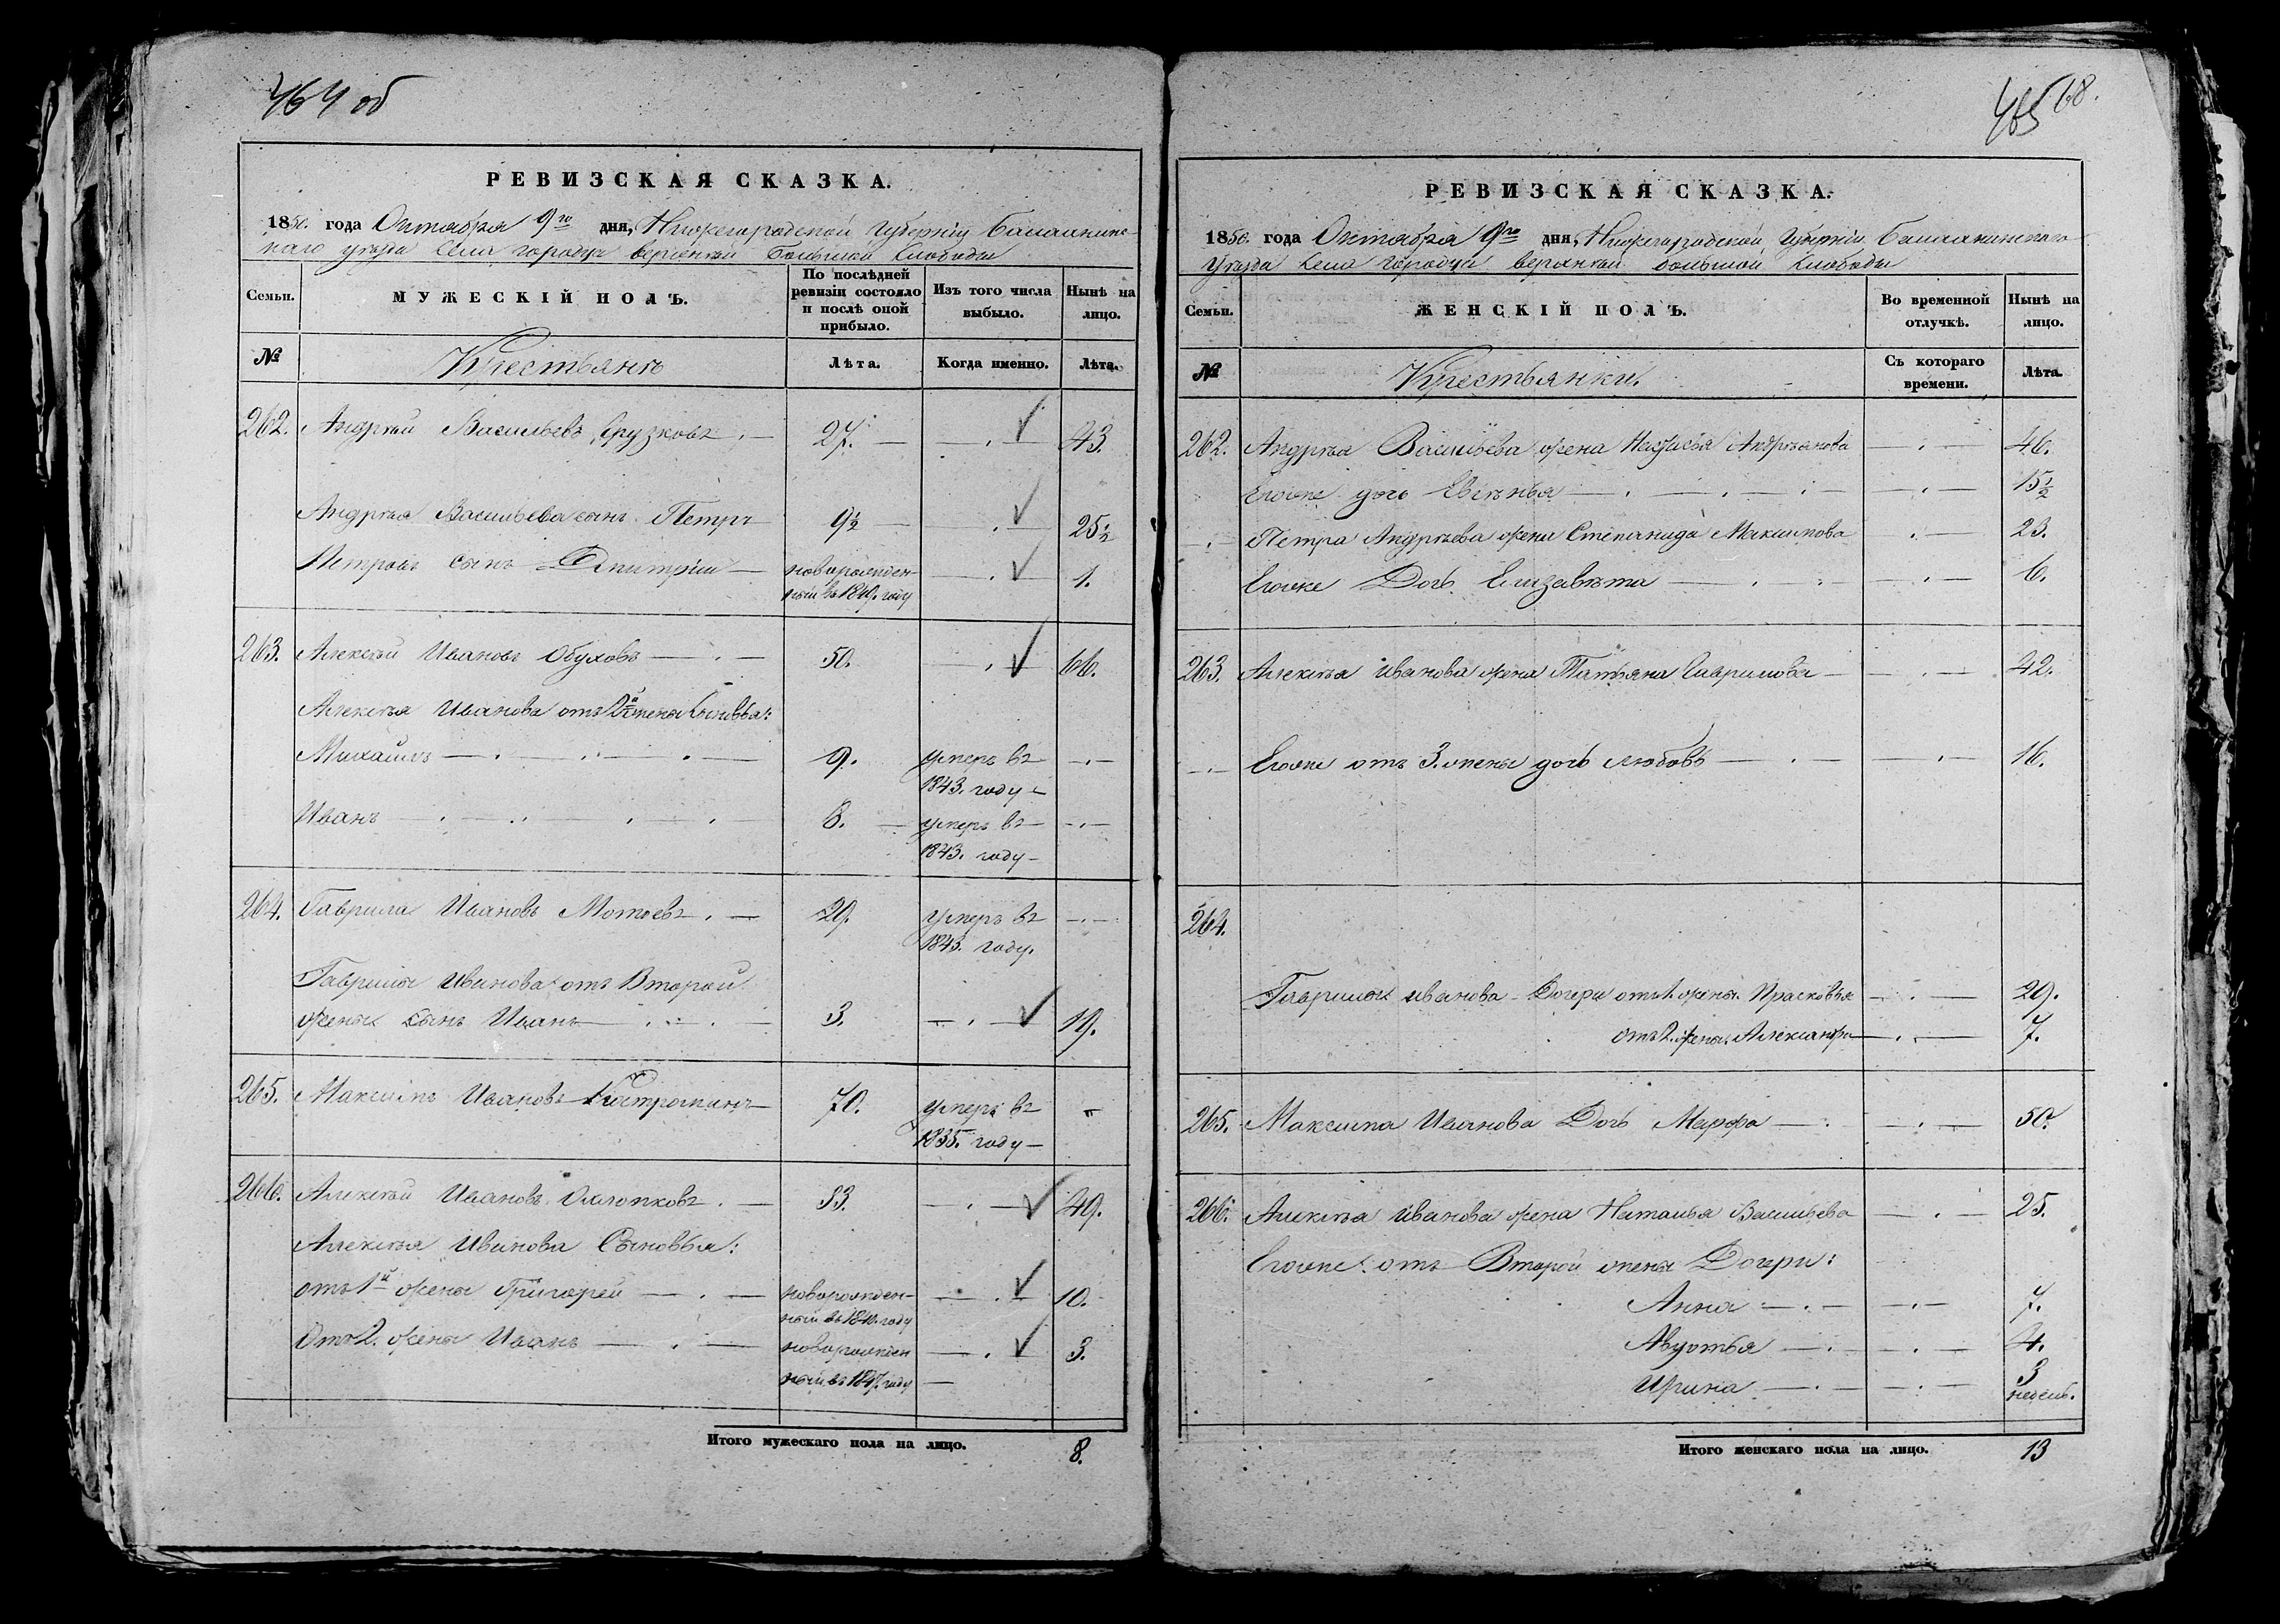 464 об
РЕВИЗСКАЯ СКАЗКА.
1850. года Октября 9го дня, Нижегородской Губерніи Балахнинс-
каго уезда Села городца верхней Большой Слободы
Семьи.
МУЖЕСКІЙ ПОЛЪ.
По послѣдней ревизіи состояло и послѣ оной прибыло.
Изъ того числа выбыло.
Нынѣ на лицо.
№
Крестьянъ
Лѣта.
Когда именно.
Лѣта.
262. Андрей Васильевъ 27. 43.
Андрея Васильева сынъ Петръ 9½ 25½
Петровъ сынъ Дмитрій новорожден- 1.
ный въ 1849. году
263. Алексѣй Ивановъ Обуховъ 50. 66.
Алексѣя Иванова отъ 2й жены Сыновья:
Михайлъ 9. умеръ въ
1843. году
Иванъ 8. умеръ въ
1843. году
264. Гаврила Ивановъ 29. умеръ въ
1843. году.
Гаврилы Иванова отъ Второй
жены Сынъ Иванъ 3. 19.
265. Максимъ Ивановъ Костроминъ 70. умеръ въ
1835. году
266. Алексѣй Ивановъ 33. 49.
Алексѣя Иванова Сыновья:
отъ 1й жены Григорей новорожден- 10.
ный въ 1840. году
Отъ 2. жены Иванъ новорожден 3.
ный въ 1847. году
Итого мужескаго пола на лицо. 8.
465 68.
РЕВИЗСКАЯ СКАЗКА.
1850. года Октября 9го дня, Нижегородской Губерніи Балахнинскаго
Уезда Села городца верхней большой Слободы
Семьи.
ЖЕНСКІЙ ПОЛЪ.
Во временной отлучкѣ.
Нынѣ на лицо.
№
Крестьянки.
Съ котораго времени.
Лѣта.
262. Андрея Васильева жена Настасья Андреянова 46.
Егоже дочь Евгенья 15½
Петра Андреева жена Степанида Максимова 23.
Егоже Дочь Елизавета 6.
263. Алексѣя Иванова жена Татьяна Гаврилова 42.
Егоже отъ 3. жены дочь любовь 16.
264.
Гаврилы иванова Дочери отъ 1. жены. Прасковья 29.
отъ 2. жены. Александра 7.
265. Максима Иванова Дочь Марфа 50.
266. Алексѣя Иванова жена Наталья Васильева 25.
Егоже отъ Второй жены Дочери:
Анна 7.
Авдотья 4.
Ирина 3
недель.
Итого женскаго пола на лицо. 13